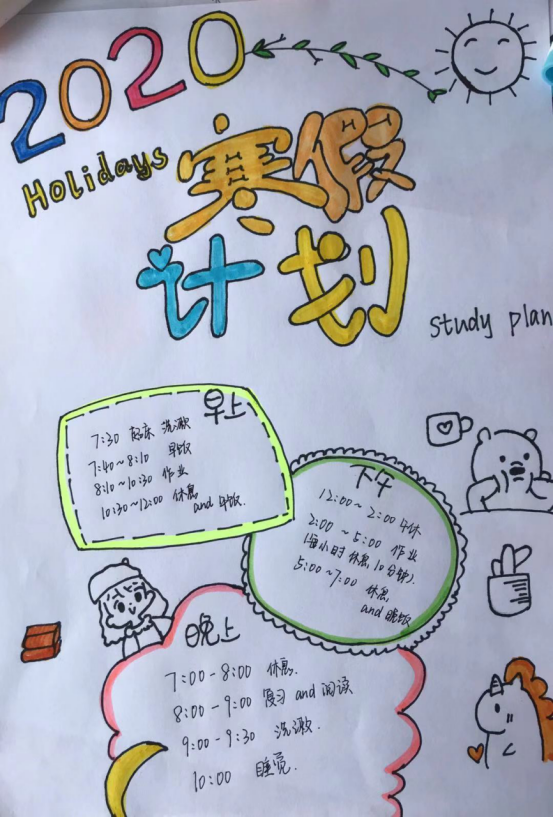 2020
Holidays
寒假
计划
study plan
早上
7:30 起床 洗漱
7:40~8:10 早饭
8:10~10:30 作业
10:30~12:00 休息
and 午饭.
下午
12:00~2:00 午休
2:00~5:00 作业
(每小时休息10分钟).
5:00~7:00 休息
and 晚饭
晚上
7:00-8:00 休息.
8:00-9:00 复习 and 阅读
9:00-9:30 洗漱.
10:00 睡觉.